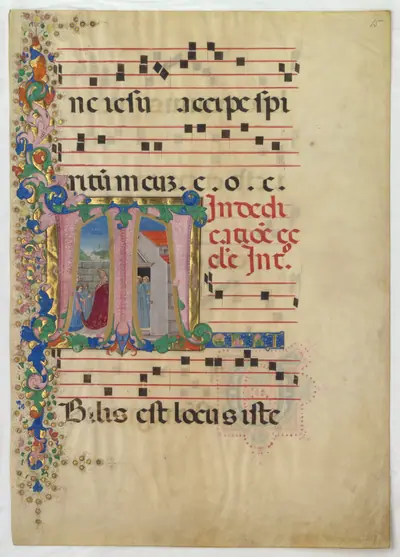 15
ne iesu accipe spi
ritū meuz . c . o . c .
In dedi
catiōe ec
cl'e Int°.
Bilis est locus iste